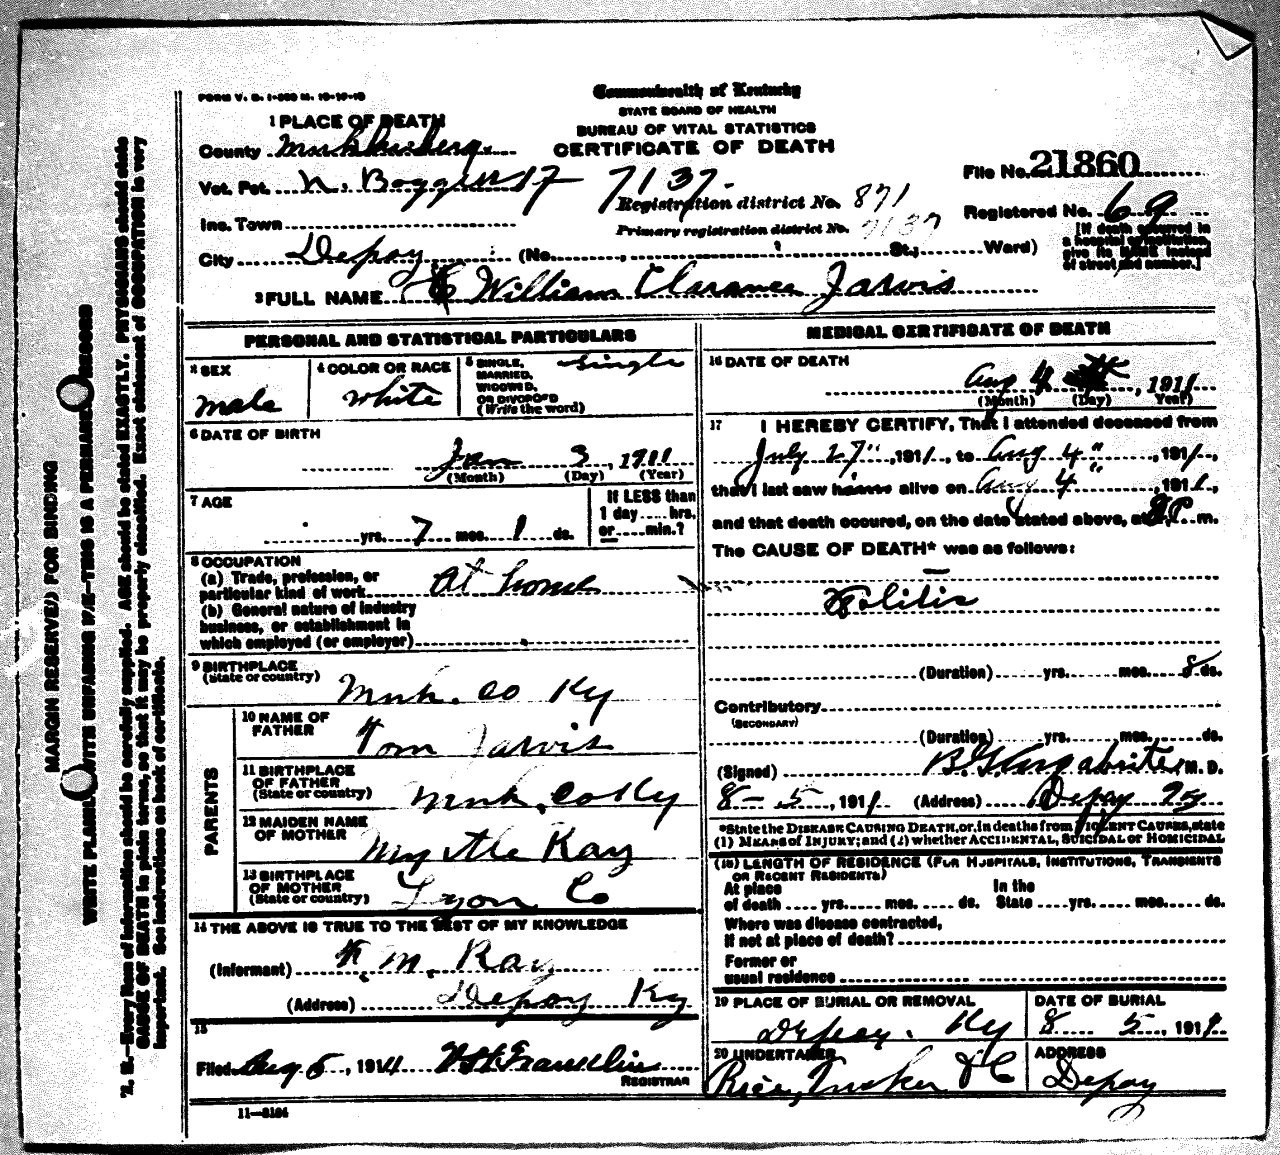 FORM V. S. 1-
Commonwealth of Kentucky
STATE BOARD OF HEALTH
BUREAU OF VITAL STATISTICS
CERTIFICATE OF DEATH
1 PLACE OF DEATH
County
Vot. Pct. N. Boggess 17 7137.
Inc. Town
City Depoy (No. , St., Ward)
Registration district No. 871
Primary registration district No. 7137
File No. 21860
Registered No. 69
[If death occurred in
a hospital or institution,
give its NAME instead
of street and number.]
2 FULL NAME William Clarance Jarvis
PERSONAL AND STATISTICAL PARTICULARS
3 SEX
male
4 COLOR OR RACE
white
5 SINGLE, MARRIED, WIDOWED, OR DIVORCED (Write the word)
single
6 DATE OF BIRTH
Jan 3, 1911
(Month) (Day) (Year)
7 AGE
yrs. 7 mos. 1 ds.
If LESS than
1 day ..... hrs.
or ..... min.?
8 OCCUPATION
(a) Trade, profession, or
particular kind of work At home
(b) General nature of industry
business, or establishment in
which employed (or employer)
9 BIRTHPLACE
(State or country)
Muh. Co Ky
PARENTS
10 NAME OF FATHER
Tom Jarvis
11 BIRTHPLACE OF FATHER
(State or country)
Muh. Co Ky
12 MAIDEN NAME OF MOTHER
Myrtle Ray
13 BIRTHPLACE OF MOTHER
(State or country)
Lyon Co
14 THE ABOVE IS TRUE TO THE BEST OF MY KNOWLEDGE
(Informant) M. Ray
(Address) Depoy Ky
15
Filed Aug 5, 1911 Franklin
REGISTRAR
11—3184
MEDICAL CERTIFICATE OF DEATH
16 DATE OF DEATH
Aug 4, 1911
(Month) (Day) Year)
17 I HEREBY CERTIFY, That I attended deceased from
July 27", 1911, to Aug 4", 1911,
that I last saw alive on Aug 4", 1911,
and that death occured, on the date stated above, at P. m.
The CAUSE OF DEATH* was as follows:
Colitis
(Duration) yrs. mos. 8 ds.
Contributory
(SECONDARY)
(Duration) yrs. mos. ds.
(Signed) M. D.
8-5, 1911 (Address) Depoy Ky
*State the DISEASE CAUSING DEATH, or, in deaths from VIOLENT CAUSES, state
(1) MEANS of INJURY; and (2) whether ACCIDENTAL, SUICIDAL or HOMICIDAL
(18) LENGTH OF RESIDENCE (FOR HOSPITALS, INSTITUTIONS, TRANSIENTS
OR RECENT RESIDENTS)
At place of death .... yrs. .... mos. .... ds. In the State .... yrs. .... mos. .... ds.
Where was disease contracted,
If not at place of death?
Former or
usual residence
19 PLACE OF BURIAL OR REMOVAL
Depoy. Ky
DATE OF BURIAL
8 5, 1911
20 UNDERTAKER
Rice, Tucker & C
ADDRESS
Depoy
MARGIN RESERVED FOR BINDING
WRITE PLAINLY WITH UNFADING INK—THIS IS A PERMANENT RECORD
N. B.—Every item of information should be carefully supplied. AGE should be stated EXACTLY. PHYSICIANS should state
CAUSE OF DEATH in plain terms, so that it may be properly classified. Exact statement of OCCUPATION is very
important. See instructions on back of certificate.